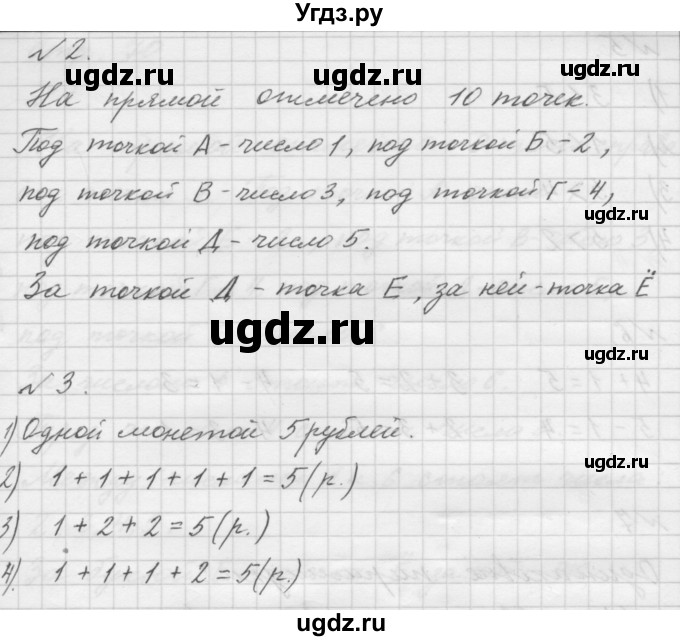 Угдз.ру
№2.
На прямой отмечено 10 точек.
Под точкой А - число 1, под точкой Б - 2,
под точкой В - число 3, под точкой Г - 4,
под точкой Д - число 5.
За точкой Д - точка Е, за ней - точка Ё
№3.
1) Одной монетой 5 рублей.
2) 1 + 1 + 1 + 1 + 1 = 5 (р.)
3) 1 + 2 + 2 = 5 (р.)
4) 1 + 1 + 1 + 2 = 5 (р.)
ugdz.ru
ugdz.ru
ugdz.ru
ugdz.ru
ugdz.ru
ugdz.ru
ugdz.ru
ugdz.ru
ugdz.ru